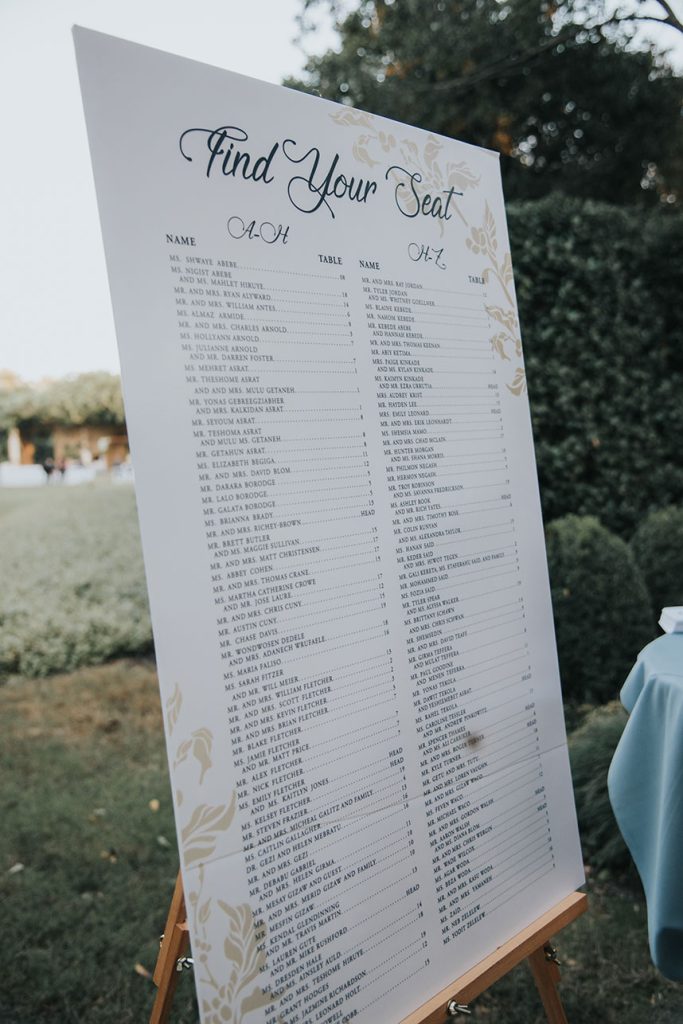 Find Your Seat
A-H
NAME TABLE
MS. SHWAYE ABEBE 18
MS. NIGIST ABEBE
AND MS. MAHLET HIRUYE 18
MR. AND MRS. RYAN ALYWARD 14
MR. AND MRS. WILLIAM ANTES
MS. ALMAZ ARMIDE
MR. AND MRS. CHARLES ARNOLD
MS. HOLLYANN ARNOLD
MS. JULIANNE ARNOLD
AND MR. DARREN FOSTER 7
MS. MEHRET ASRAT
MR. THESHOME ASRAT
AND AND MRS. MULU GETANEH
MR. YONAS GEBREEGZIABHER
AND MRS. KALKIDAN ASRAT
MR. SEYOUM ASRAT
MR. TESHOMA ASRAT
AND MULU MS. GETANEH
MR. GETAHUN ASRAT
MS. ELIZABETH BEGIGA
MR. AND MRS. DAVID BLOM 12
MR. DABARA BORODGE
MR. LALO BORODGE
MR. GALATA BORODGE
MS. BRIANNA BRADY HEAD
MR. AND MRS. RICHEY-BROWN
MR. BRETT BUTLER
AND MS. MAGGIE SULLIVAN 15
MR. AND MRS. MATT CHRISTENSEN 17
MS. ABBEY COHEN
MR. AND MRS. THOMAS CRANE
MS. MARTHA CATHERINE CROWE
AND MR. JOSE LAURE
MR. AND MRS. CHRIS CUNY
MR. AUSTIN CUNY
MR. CHASE DAVIS
MR. WONDWOSEN DEDELE
AND MRS. ADANECH WRUFAELE
MS. MARIA FALISO
MS. SARAH FITZER
AND MR. WILL MEIER
MR. AND MRS. WILLIAM FLETCHER
MR. AND MRS. SCOTT FLETCHER
MR. AND MRS. KEVIN FLETCHER
MR. AND MRS. BRIAN FLETCHER
MR. BLAKE FLETCHER
MS. JAMIE FLETCHER
AND MR. MATT PRICE
MR. ALEX FLETCHER
MR. NICK FLETCHER HEAD
MS. EMILY FLETCHER
AND MS. KAITLYN JONES
MS. KELSEY FLETCHER HEAD
MR. STEVEN FRAZIER
MR. AND MRS. MICHEAL GALITZ AND FAMILY
MS. CAITLIN GALLAGHER
DR. GEZI AND HELEN MEBRATU
MR. AND MRS. GEZI
MR. DEBABU GABRIEL
AND MRS. HELEN GIRMA
MR. MESAY GIZAW AND GUEST
MR. AND MRS. MERID GIZAW AND FAMILY
MR. MESFIN GIZAW
MS. KENDAL GLENDINNING HEAD
AND MR. TRAVIS MARTIN
MS. LAUREN GUTE
AND MR. MIKE RUSHFORD
MS. DRESDEN HALE
AND MS. AINSLEY AULD
MR. AND MRS. TESHOME HIRUYE
MR. GRANT HODGES
AND MS. JAZMINE RICHARDSON
MRS. LEONARD HOLT
COBB
H-Z
NAME TABLE
MR. AND MRS. RAY JORDAN
MR. TYLER JORDAN
AND MS. WHITNEY GOELLNER
MS. BLAINE KEBEDE
MR. NAHOM KEBEDE
MR. KEBEDE ABEBE
AND HANNAH KEBEDE
MR. AND MRS. THOMAS KEENAN
MR. ABIY KETIMA
MRS. PAIGE KINKADE
AND MS. KYLAN KINKADE
MS. RAIMYN KINKADE
AND MR. EZRA URRUTIA HEAD
MRS. AUDREY KRIST
MR. HAYDEN LEE
MRS. EMILY LEONARD HEAD
MR. AND MRS. ERIK LEONHARDT
MS. SHEMSIA MAMO
MR. AND MRS. CHAD MCLAIN
MR. HUNTER MORGAN
AND MS. SHANA MORRIS
MR. PHILMON NEGASH
MR. HERMON NEGASH
MR. TROY ROBINSON
AND MS. SAVANNA FREDRICKSON
MS. ASHLEY ROOK
AND MR. RICH YATES HEAD
MR. AND MRS. TIMOTHY ROSE
MR. COLIN RUNYAN
AND MS. ALEXANDRA TAYLOR
MS. HANAN SAID
MR. KEDER SAID
AND MRS. HIWOT TEGEN
MR. MOHAMMED SAID
MS. FOZIA SAID
MR. TYLER SPEAR
AND MS. ALYSSA WALKER
MS. BRITTANY SCHAWN
AND MRS. CHRIS SCHWAN
MR. SHEMSEDIN
MR. AND MRS. DAVID TEAFF
MR. GIRMA TEFFERA
AND MULAT TEFFERA
MR. PAUL GOODINE
AND MENEN TEFERRA
MR. YONAS TEKOLA
MR. DAWIT TEKOLA
MS. RAHEL TEKOLA
MS. CAROLINE TESSLER HEAD
AND MR. ANDREW PINKOWITZ
MR. SPENCER THAMES HEAD
AND MS. ALI CARRIKER
MR. AND MRS. ROGER TURNER
MR. KYLE TURNER HEAD
MR. GETU AND MRS. TUTU
MR. AND MRS. LOREN VAUGHN
MR. AND MRS. GIZAW WACO
MS. FEVEN WACO
MR. MICHAEL WACO
MR. AND MRS. GORDON WALSH
MR. AARON WALSH HEAD
AND MS. DIANA BLOM
MR. AND MRS. CHRIS WERGIN
MR. WADE WHYLOR
MS. HIAB WODA
MS. BEZA WODA
MR. AND MRS. KASU WODA
MR. AND MRS. YAMANEH
MS. ZAID
MR. NEB ZELELEW
MS. YODIT ZELELEW